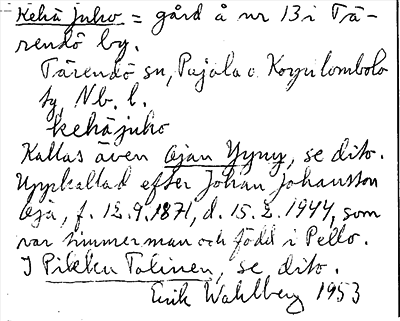 Kehä juho = gård å nr 13 i Tä-
rendö by.
Tärendö sn, Pajala o. Korpilombolo
tg Nb. l.
kehäjuho
Kallas även Ojan Yyny, se dito.
Uppkallad efter Johan Johansson
Oja, f. 12.9.1871, d. 15.2.1944, som
var timmerman och född i Pello.
I Pikku Tolinen, se dito.
Erik Wahlberg 1953